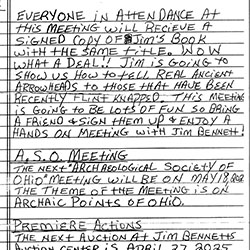 EVERYONE IN ATTENDANCE AT
THIS MEETING WILL RECIEVE A
SIGNED COPY OF JIM'S BOOK
WITH THE SAME TITLE. WOW
WHAT A DEAL!! JIM IS GOING TO
SHOW US HOW TO TELL REAL ANCIENT
ARROWHEADS TO THOSE THAT HAVE BEEN
RECENTLY FLINT KNAPED. THIS MEETING
IS GOING TO BE LOTS OF FUN SO BRING
A FRIEND & SIGN THEM UP & ENJOY A
HANDS ON MEETING WITH JIM BENNETT!
A.S.O. MEETING
THE NEXT "ARCHAEOLOGICAL SOCIETY OF
OHIO" MEETING WILL BE ON MAY 18,
THE THEME OF THE MEETING IS ON
ARCHAIC POINTS OF OHIO.
PREMIERE ACTIONS
THE NEXT AUCTION AT JIM BENNETTS
AUCTION CENTER IS APRIL 27 2025